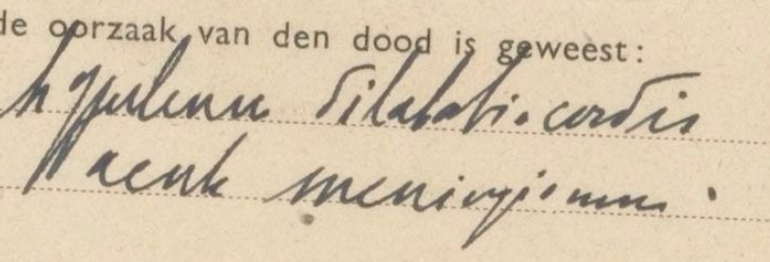 de oorzaak van den dood is geweest:
dilatatio cordis
acuut meningismus